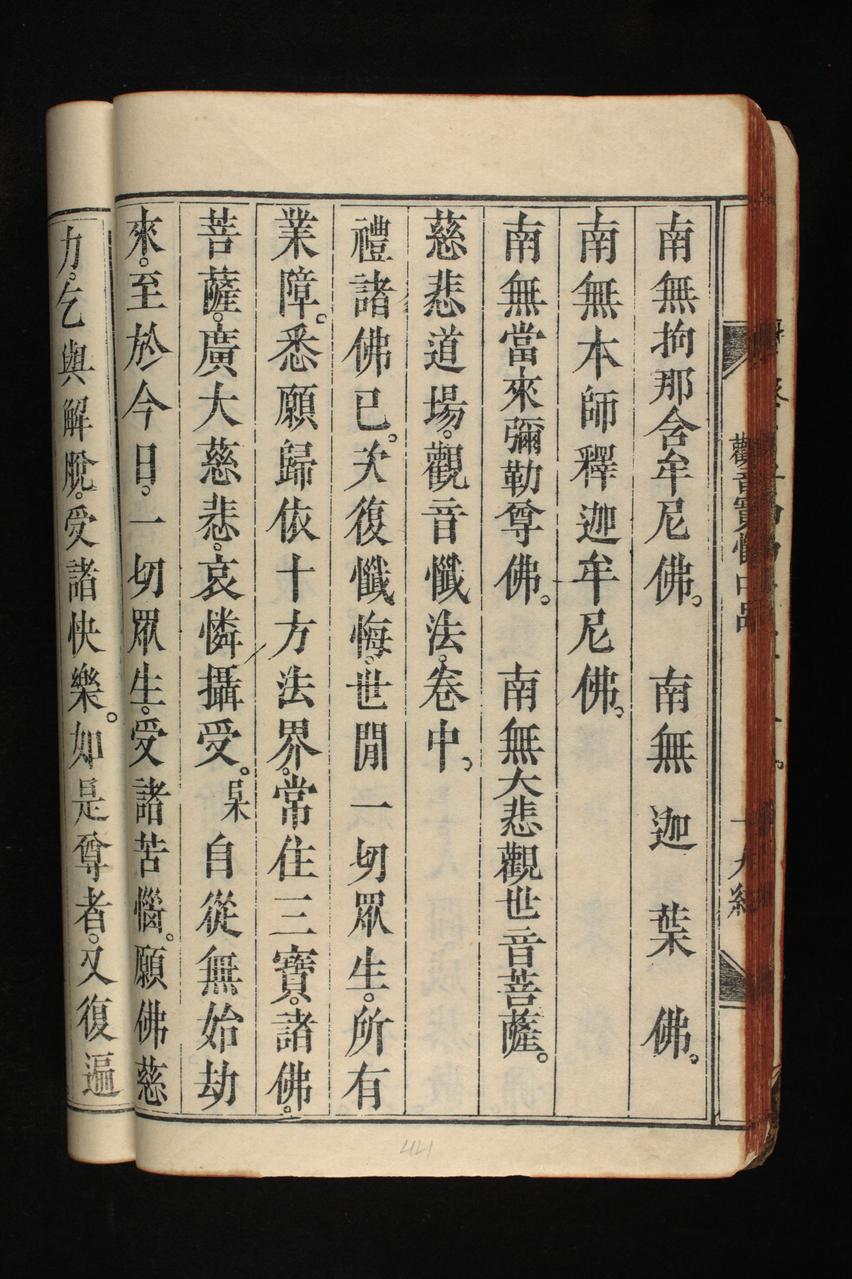 觀音寶懺中品 十九紙
南無拘那含牟尼佛。 南無迦葉佛。
南無本師釋迦牟尼佛。
南無當來彌勒尊佛。 南無大悲觀世音菩薩。
慈悲道場。觀音懺法。卷中。
禮諸佛已。次復懺悔。世閒一切眾生。所有
業障。悉願歸依十方法界。常住三寶。諸佛。
菩薩。廣大慈悲。哀憐攝受。自從無始劫
來。至於今日。一切眾生。受諸苦惱。願佛慈
力。乞與解脫。受諸快樂。如是尊者。又復遍
441